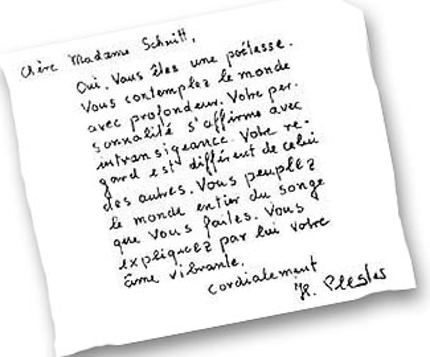 Chère Madame Schmitt,
Oui. Vous êtes une poétesse.
Vous contemplez le monde
avec profondeur. Votre per-
sonnalité s'affirme avec
intransigeance. Votre re-
gard est différent de celui
des autres. Vous peuplez
le monde entier du songe
que vous faites. Vous
expliquez par lui votre
âme vibrante.
cordialement